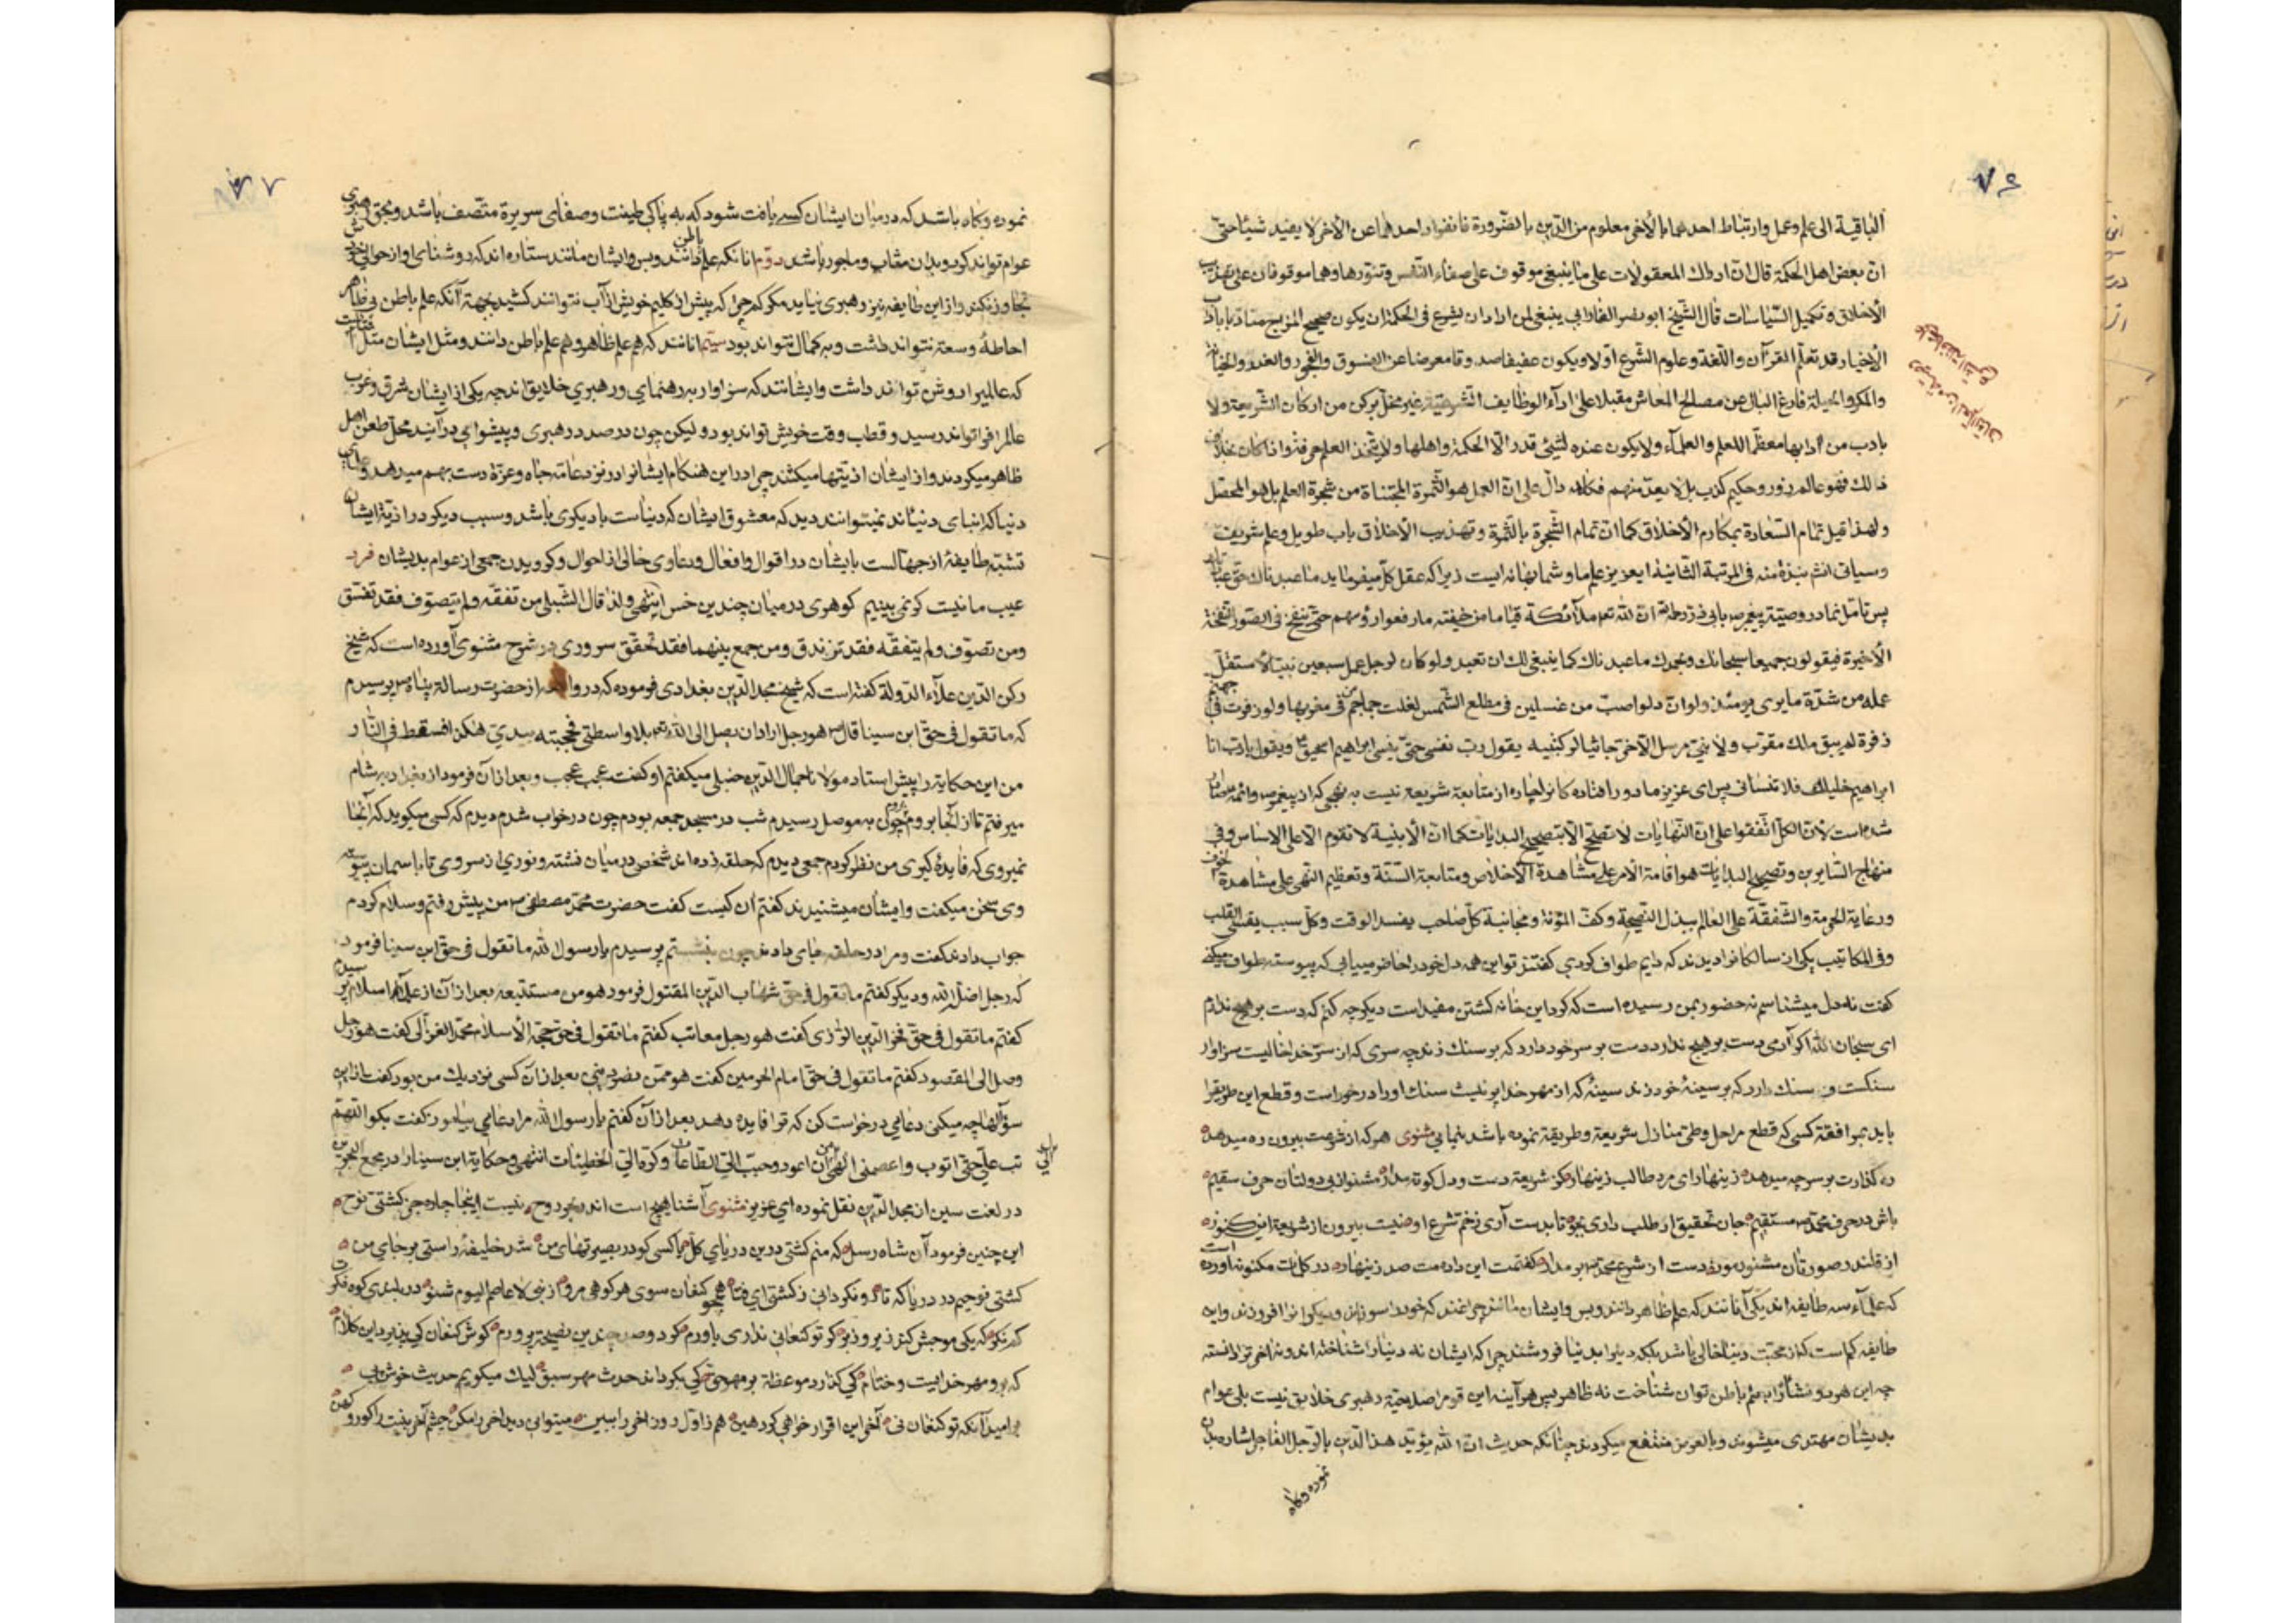 ۷۶
الباقیة الی علم وعمل وارتباط احدهما بالأخر معلوم من الدین بالضرورة فانفراد احدهما عن الأخر لا یفید شیئا حتی
ان بعض اهل الحکمة قال ان ادراك المعقولات علی ما ینبغی موقوف علی صفاء النفس وتنورها وهما موقوفان علی تهذیب
الأخلاق و تکمیل السیاسات قال الشیخ ابو نصر الفارابی ینبغی لمن اراد ان یشرع فی الحکمة ان یکون صحیح المزاج متادبا باداب
الأخیار قد تعلم القرآن واللغة وعلوم الشرع اولا ویکون عفیفا صدوقا معرضا عن الفسوق والفجور والغدر والخیانة
والمکر والحیلة فارغ البال عن مصالح المعاش مقبلا علی اداء الوظایف الشرعیة غیر مخل برکن من ارکان الشریعة ولا
بادب من ادابها معظما للعلم والعلماء ولا یکون عنده لشئ قدر الا الحکمة واهلها ولا یتخذ العلم حرفة واذا کان بخلاف
ذالك فهو عالم زور وحکیم کذب بل لا یعد منهم فکلامه دال علی ان العمل هو الثمرة المجتناة من شجرة العلم بل هو المحصل
ولهذا قیل تمام السعادة بمکارم الأخلاق کما ان تمام الشجرة بالثمرة وتهذیب الاخلاق باب طویل وعلم شریف
وسیاتی نبذة منه فی المرتبة الثانیة ای عزیز علم ما و شما بهانه ایست زیرا که عقل کل میفرماید ما عبدناك حق عبادتك
پس تامل نما در وصیت پیغمبر بابی ذر رحمه ان لله ملائکة قیاما من خیفته ما رفعوا رؤسهم حتی ینفخ فی الصور النفخة
الأخیرة فیقولون جمیعا سبحانك وبحمدك ما عبدناك کما ینبغی لك ان تعبد ولو کان لرجل عمل سبعین نبیا لأستقل
عمله من شدة ما یری یومئذ ولو ان دلوا صب من غسلین فی مطلع الشمس لغلت جماجم من فی مغربها ولو زفرت جهنم
زفرة لم یبق ملك مقرب ولا نبی مرسل الا خر جاثیا لرکبتیه یقول رب نفسی حتی ینسی ابراهیم اسحق ویقول یا رب انا
ابراهیم خلیلك فلا تنسانی پس ای عزیز ما دور افتادگانرا چاره از متابعة شریعه نیست به نهجی که از پیغمبر وائمه
شده است لأن الکل اتفقوا علی ان النهایات لا تصلح الا بتصحیح البدایات کما ان الأبنیة لا تقوم الا علی الاساس وفی
منهاج السایرین وتصحیح البدایات هو اقامة الأمر علی مشاهدة الأخلاص ومتابعة السنة وتعظیم النهی علی مشاهدة الخوف
ورعایة الحرمة والشفقة علی العالم ببذل النصیحة وکف المؤنة ومجانبة کل صاحب یفسد الوقت وکل سبب یفتن القلب
وفی المکاتیب یکی از سالکانرا دیدند که دایم طواف کردی گفتند تو این همه دل خود را حاضر مییابی که پیوسته طواف میکنی
گفت نه دل میشناسم نه حضور بمن رسیده است که گرد این خانه گشتن مفید است دیگر چه کنم که دست بر هیچ ندارم
ای سبحان الله اگر آدمی دست بر هیچ ندارد دست بر سر خود دارد که بر سنك زند چه سری که از سر خدا خالیست سزاوار
سنگست و سنك دارد که بر سینۀ خود زند سینۀ که از مهر خدا پر نیست سنك او را درخور است وقطع این طریقرا
باید بموافقة کسی که قطع مراحل وطی منازل شریعة وطریقة نموده باشد بنمایی مثنوی هر که از شرعت بیرون ره میدهد
ره گذارت بر سرچه میدهد زینهار ای مرد طالب زینهار کز شریعة دست ودل کوته مدار مشنو از بی دولتان حرف سقیم
باش در حرف محمد مستقیم جان تحقیق ار طلب داری بجو تا بدست آری زخم شرع او نیست بیرون از شریعة این کنوز
از قلندر صورتان مشنو رموز دست از شرع محمد بر مدار گفتمت این راه راست صد زینهار در کلمات مکنونه آورده است
که علماء سه طایفه اند یکی آنانند که علم ظاهر دانند وبس وایشان مانند چراغند که خود را سوزاند ودیگرانرا افروزند واین
طایفه کم است که از محبت دنیا خالی باشد بلکه دینرا بدنیا فروشند چرا که ایشان نه دنیارا شناخته اند ونه اخر ترا دانسته
چه این هر دو نشأترا بعلم باطن توان شناخت نه ظاهر پس هرآینه این قوم را صلاحیة رهبری خلایق نیست بلی عوام
بدیشان مهتدی میشوند وبالعرض منتفع میگردند چنانکه حدیث ان الله یؤید هذا الدین بالرجل الفاجر اشاره بدان
نموده وگاه
۷۷
نموده وگاه باشد که در میان ایشان کسی یافت شود که به پاکی طینت وصفای سریرة متصف باشد وبحق رهبری
عوام تواند کرد وبدان مثاب وماجور باشد دوم انانکه علم باطن دانند وبس وایشان مانند ستاره اند که روشنای او از حوالی خودش
تجاوز نکند واز این طایفه نیز رهبری نیاید مگر کم چرا که پیش از گلیم خویش از آب نتوانند کشید بجهة آنکه علم باطن بی ظاهر
احاطۀ وسعة نتواند داشت وبه کمال نتواند بود سیم انانند که هم علم ظاهر وهم علم باطن دانند ومثل ایشان مثل آفتابست
که عالمیرا روشن تواند داشت وایشانند که سزاوار به رهنمای ورهبری خلایق اند چه یکی از ایشان شرق وغرب
عالم را فرا تواند رسید و قطب وقت خویش تواند بود ولیکن چون در صدد رهبری وپیشوای در آیند محل طعن اهل
ظاهر میگردند واز ایشان اذیتها میکشند چرا در این هنگام ایشانرا در نزد عامة جاه وعزة دست بهم میدهد
دنیا که ابنای دنیااند نمیتوانند دید که معشوق ایشان که دنیاست با دیگری باشد وسبب دیگر در اذیة ایشان
تشبه طایفۀ از جهالست بایشان در اقوال وافعال ودعاوی خالی از احوال وگرویدن جمعی از عوام بدیشان فرد
عیب ما نیست گر نمی بینیم گوهری در میان چندین خس انتهی ولذا قال الشبلی من تفقه ولم یتصوف فقد تفسق
ومن تصوف ولم یتفقه فقد تزندق ومن جمع بینهما فقد تحقق سروری در شرح مثنوی آورده است که شیخ
رکن الدین علاء الدولة گفته است که شیخ مجد الدین بغدادی فرموده که در از حضرت رسالة پناه پرسیدم
که ما تقول فی حق ابن سینا قال هو رجل اراد ان یصل الی الله بلا واسطتی فحجبته بیدی هکذا فسقط فی النار
من این حکایة را پیش استاد مولانا جمال الدین حنبلی میگفتم او گفت عجب عجب وبعد از آن فرمود از بغداد به شام
میرفتم تا از آنجا بروم بروم چون به موصل رسیدم شب در مسجد جمعه بودم چون در خواب شدم دیدم که کسی میگوید که آنجا
نمیروی که فایدۀ گیری من نظر کردم جمعی دیدم که حلقه زده اند شخصی در میان نشسته ونوری از سر وی تا باسمان پیوسته
وی سخن میگفت وایشان میشنیدند گفتم ان کیست گفت حضرت محمد مصطفی من پیش رفتم وسلام کردم
جواب دادند گفت ومرا در حلقه جای دادند چون بنشستم پرسیدم یا رسول الله ما تقول فی حق ابن سینا فرمود
که رجل اضل الله ودیگر گفتم ما تقول فی حق شهاب الدین المقتول فرمود هو من متبعیه بعد از آن از علماء اسلام پرسیدم
گفتم ما تقول فی حق فخر الدین الرازی گفت هو رجل معاتب گفتم ما تقول فی حق حجة الأسلام محمد الغزالی گفت هو رجل
وصل الی المقصود گفتم ما تقول فی حق امام الحرمین گفت هو ممن نصر دینی بعد از آن کسی نزدیك من بود گفت از این
سؤالها چه میکنی دعایی درخواست کن که ترا فایده دهد بعد از آن گفتم یا رسول الله مرا دعایی بیاموز گفت بگو اللهم
تب علی حتی اتوب واعصمنی من ان اعود وحبب الی الطاعات وکره الی الخطیئات انتهی وحکایة ابن سینا را در مجمع البحرین
در لغت سین از مجد الدین نقل نموده ای عزیز مثنوی آشنا هیچ است اندر بحر روح نیست اینجا چاره جز کشتی نوح
این چنین فرمود آن شاه رسل که منم کشتی درین دریای کل یا کسی کو در بصیرتهای من شد خلیفۀ راستی بر جای من
کشتی نوحیم در دریا که تا رو نگردانی ز کشتی ای فتا همچو کنعان سوی هر کوهی مرو از نبی لا عاصم الیوم شنو در بلندی کوه فکرت
کم نگر که یکی موجش کند زیر و زبر گر تو کنعانی نداری باورم گر دو صد چندین نصیحة پرورم گوش کنعان کی پذیرد این کلام
که برو مهر خدایست وختام کی گذارد موعظة بر مهر حق کی بگرداند حدث مهر سبق لیك میگویم حدیث خوش پی
بر امید آنکه تو کنعان نی آخر این اقرار خواهی کرد هین هم ز اول روز اخر را ببین میتوانی دید اخر را مکن چشم آخر بینت را کور و کهن